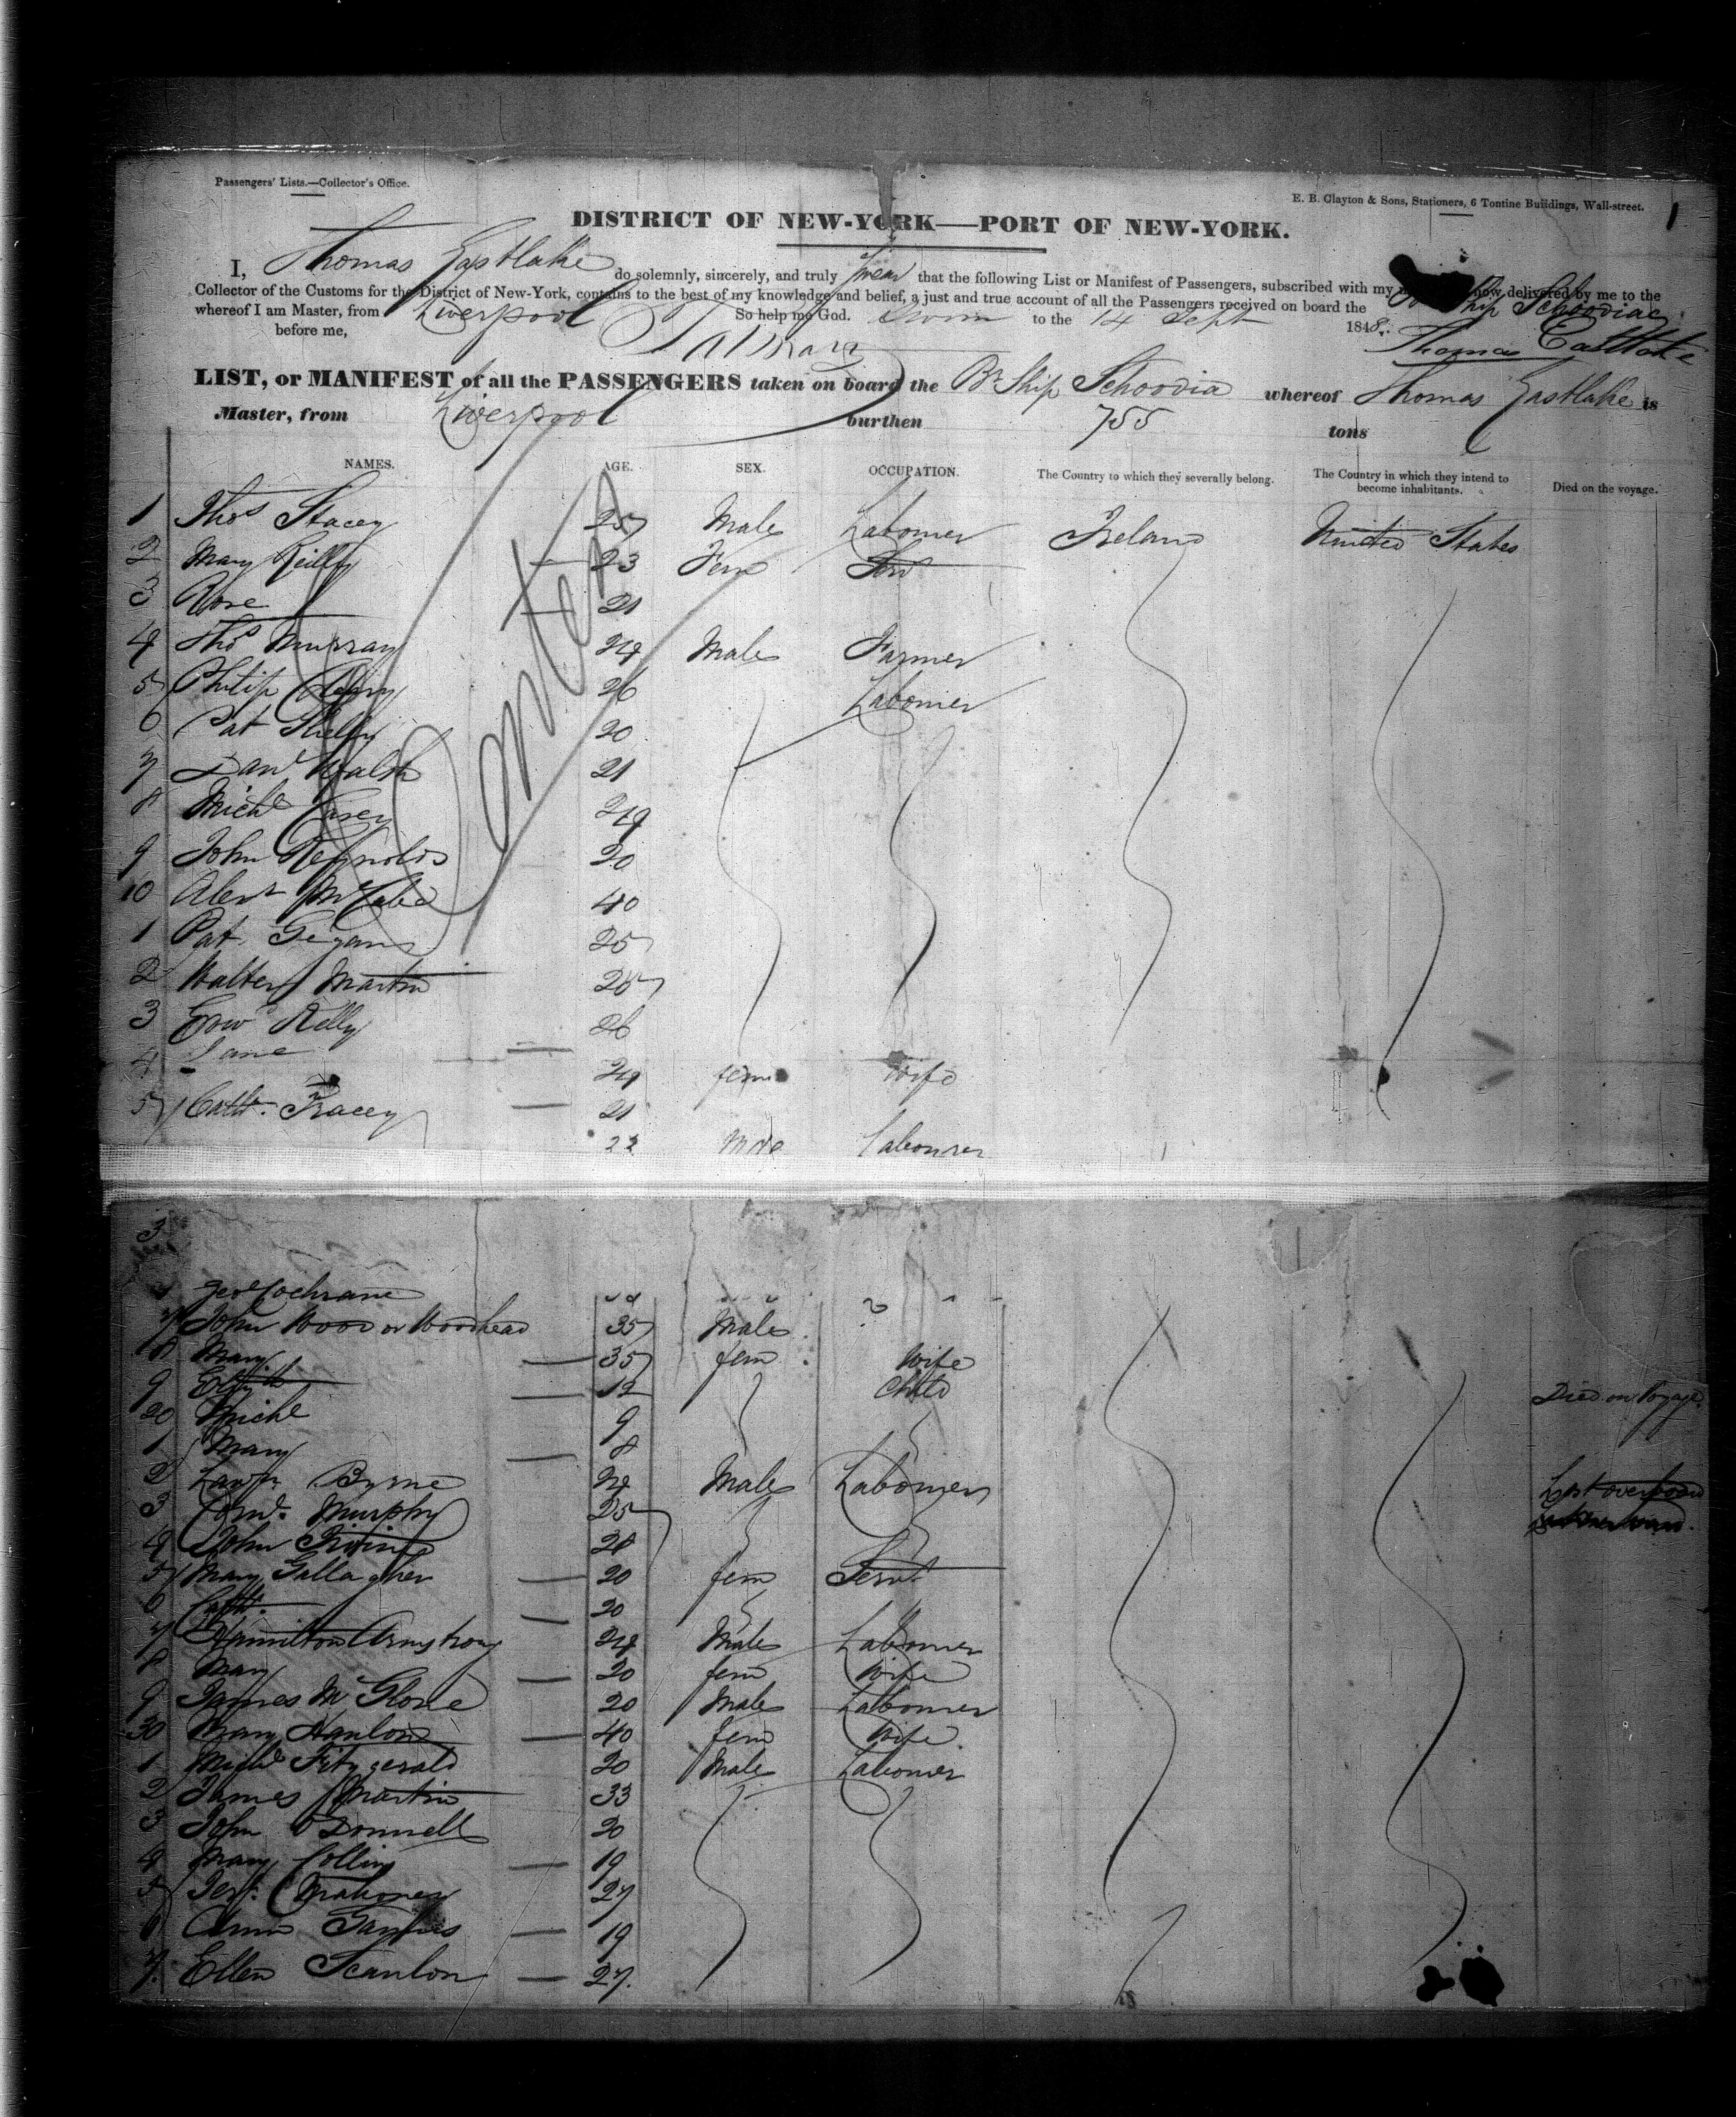 Passengers' Lists.—Collector's Office.
E. B. Clayton & Sons, Stationers, 6 Tontine Buildings, Wall-street.
1
DISTRICT OF NEW-YORK—PORT OF NEW-YORK.
I, Thomas Eastlake do solemnly, sincerely, and truly swear that the following List or Manifest of Passengers, subscribed with my now delivered by me to the
Collector of the Customs for the District of New-York, contains to the best of my knowledge and belief, a just and true account of all the Passengers received on board the Ship Schoodiac
whereof I am Master, from Liverpool So help me God. Sworn to the 14 Sept 1848.
before me, Thomas Eastlake
LIST, or MANIFEST of all the PASSENGERS taken on board the Br Ship Schoodia whereof Thomas Eastlake is
Master, from Liverpool burthen 755 tons
NAMES. AGE. SEX. OCCUPATION. The Country to which they severally belong. The Country in which they intend to become inhabitants. Died on the voyage.
Centered
1 Thos Stacey 25 Male Labourer Ireland United States
2 Mary Reilly — 23 Fem Serv
3 Rose 21
4 Thos Murray 24 Male Farmer
5 Philip 26 Labourer
6 Pat 20
7 Danl Walsh 21
8 Michl Casey 24
9 John Reynolds 20
10 Alexr McCabe 40
1 Pat Gegans 25
2 Walter Martin 25
3 Edwd Kelly 26
4 Jane — 24 fem wife
5 Cath. Tracey — 21
22 Male Labourer
3
Geo Cochrane
7 John Wood or Woodhead 35 Male
8 Mary — 35 fem Wife
9 Elizth — 12 Child Died on Voyage
20 Michl 9
1 Mary — 8
2 Lawr. Byrne 24 Male Labourer Lost overboard
3 Cornl. Murphy 25
4 John Irvine 28
5 Mary Gallagher — 20 fem Servt
6 Cath. — 20
7 Hamilton Armstrong 24 Male Labourer
8 Mary — 20 fem Wife
9 James McGlone 20 Male Labourer
30 Mary Hanlon — 40 fem Wife
1 Michl Fitzgerald 20 Male Labourer
2 James Martin 33
3 John O'Donnell 20
4 Mary Collins — 19
5 Jery. Mahoney 27
6 Ann — 19
7 Ellen Scanlon — 27